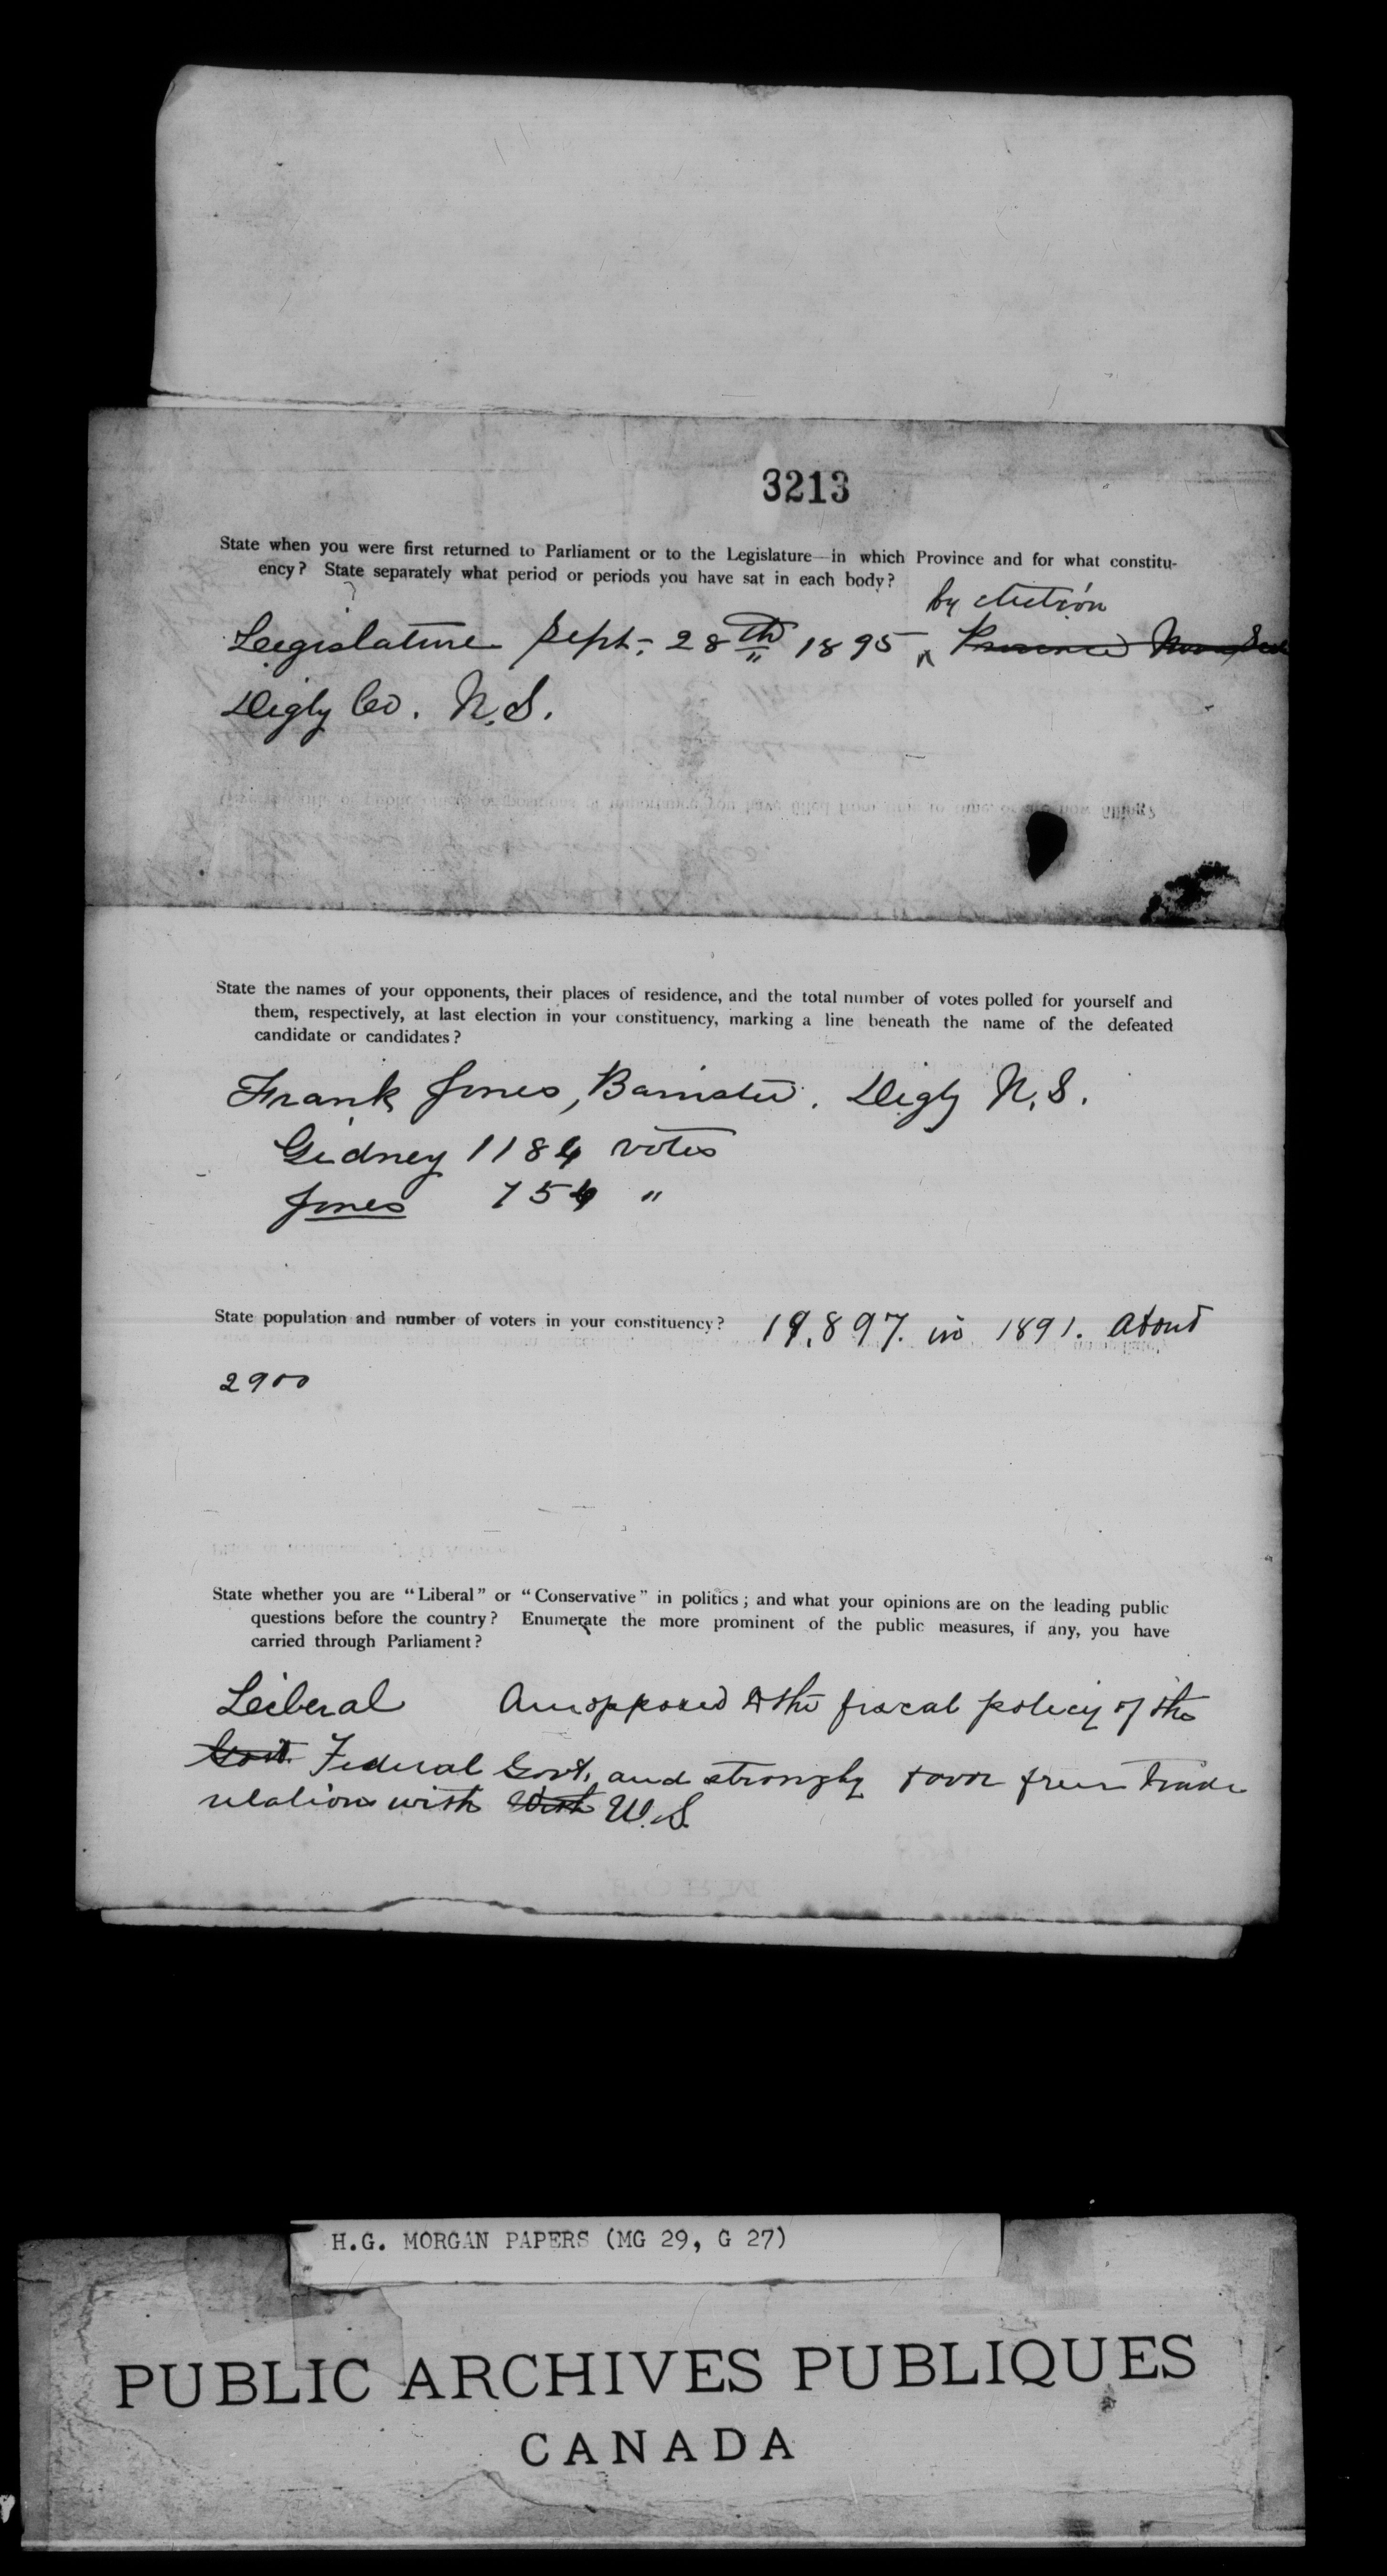 3213
State when you were first returned to Parliament or to the Legislature—in which Province and for what constitu-
ency? State separately what period or periods you have sat in each body?
by election
Legislature Sept. 28th 1895 ^ Province Nova Scotia
Digby Co. N.S.
State the names of your opponents, their places of residence, and the total number of votes polled for yourself and
them, respectively, at last election in your constituency, marking a line beneath the name of the defeated
candidate or candidates?
Frank Jones, Barrister. Digby N.S.
Gidney 1184 votes
Jones 754 "
State population and number of voters in your constituency? 19,897. in 1891. about
2900
State whether you are "Liberal" or "Conservative" in politics; and what your opinions are on the leading public
questions before the country? Enumerate the more prominent of the public measures, if any, you have
carried through Parliament?
Leiberal Am opposed to the fiscal policy of the
Govt. Federal Govt. and strongly favor freer trade
relations with With U.S.
H.G. MORGAN PAPERS (MG 29, G 27)
PUBLIC ARCHIVES PUBLIQUES
CANADA